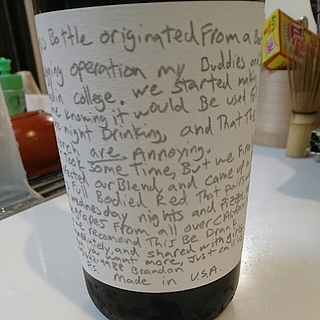 Bottle originated From a B
operation my Buddies an
in college. We started makin
knowing it would Be used F
night Drinking, and That Th
are Annoying.
Took Some Time, But we Fin
our Blend and came up w
Full Bodied Red That pair
nights and Pizza
grapes From all over Californ
recomend This Be Drank
and shared with
you want more, Just call
Brandon
P.S. Made in U.S.A.